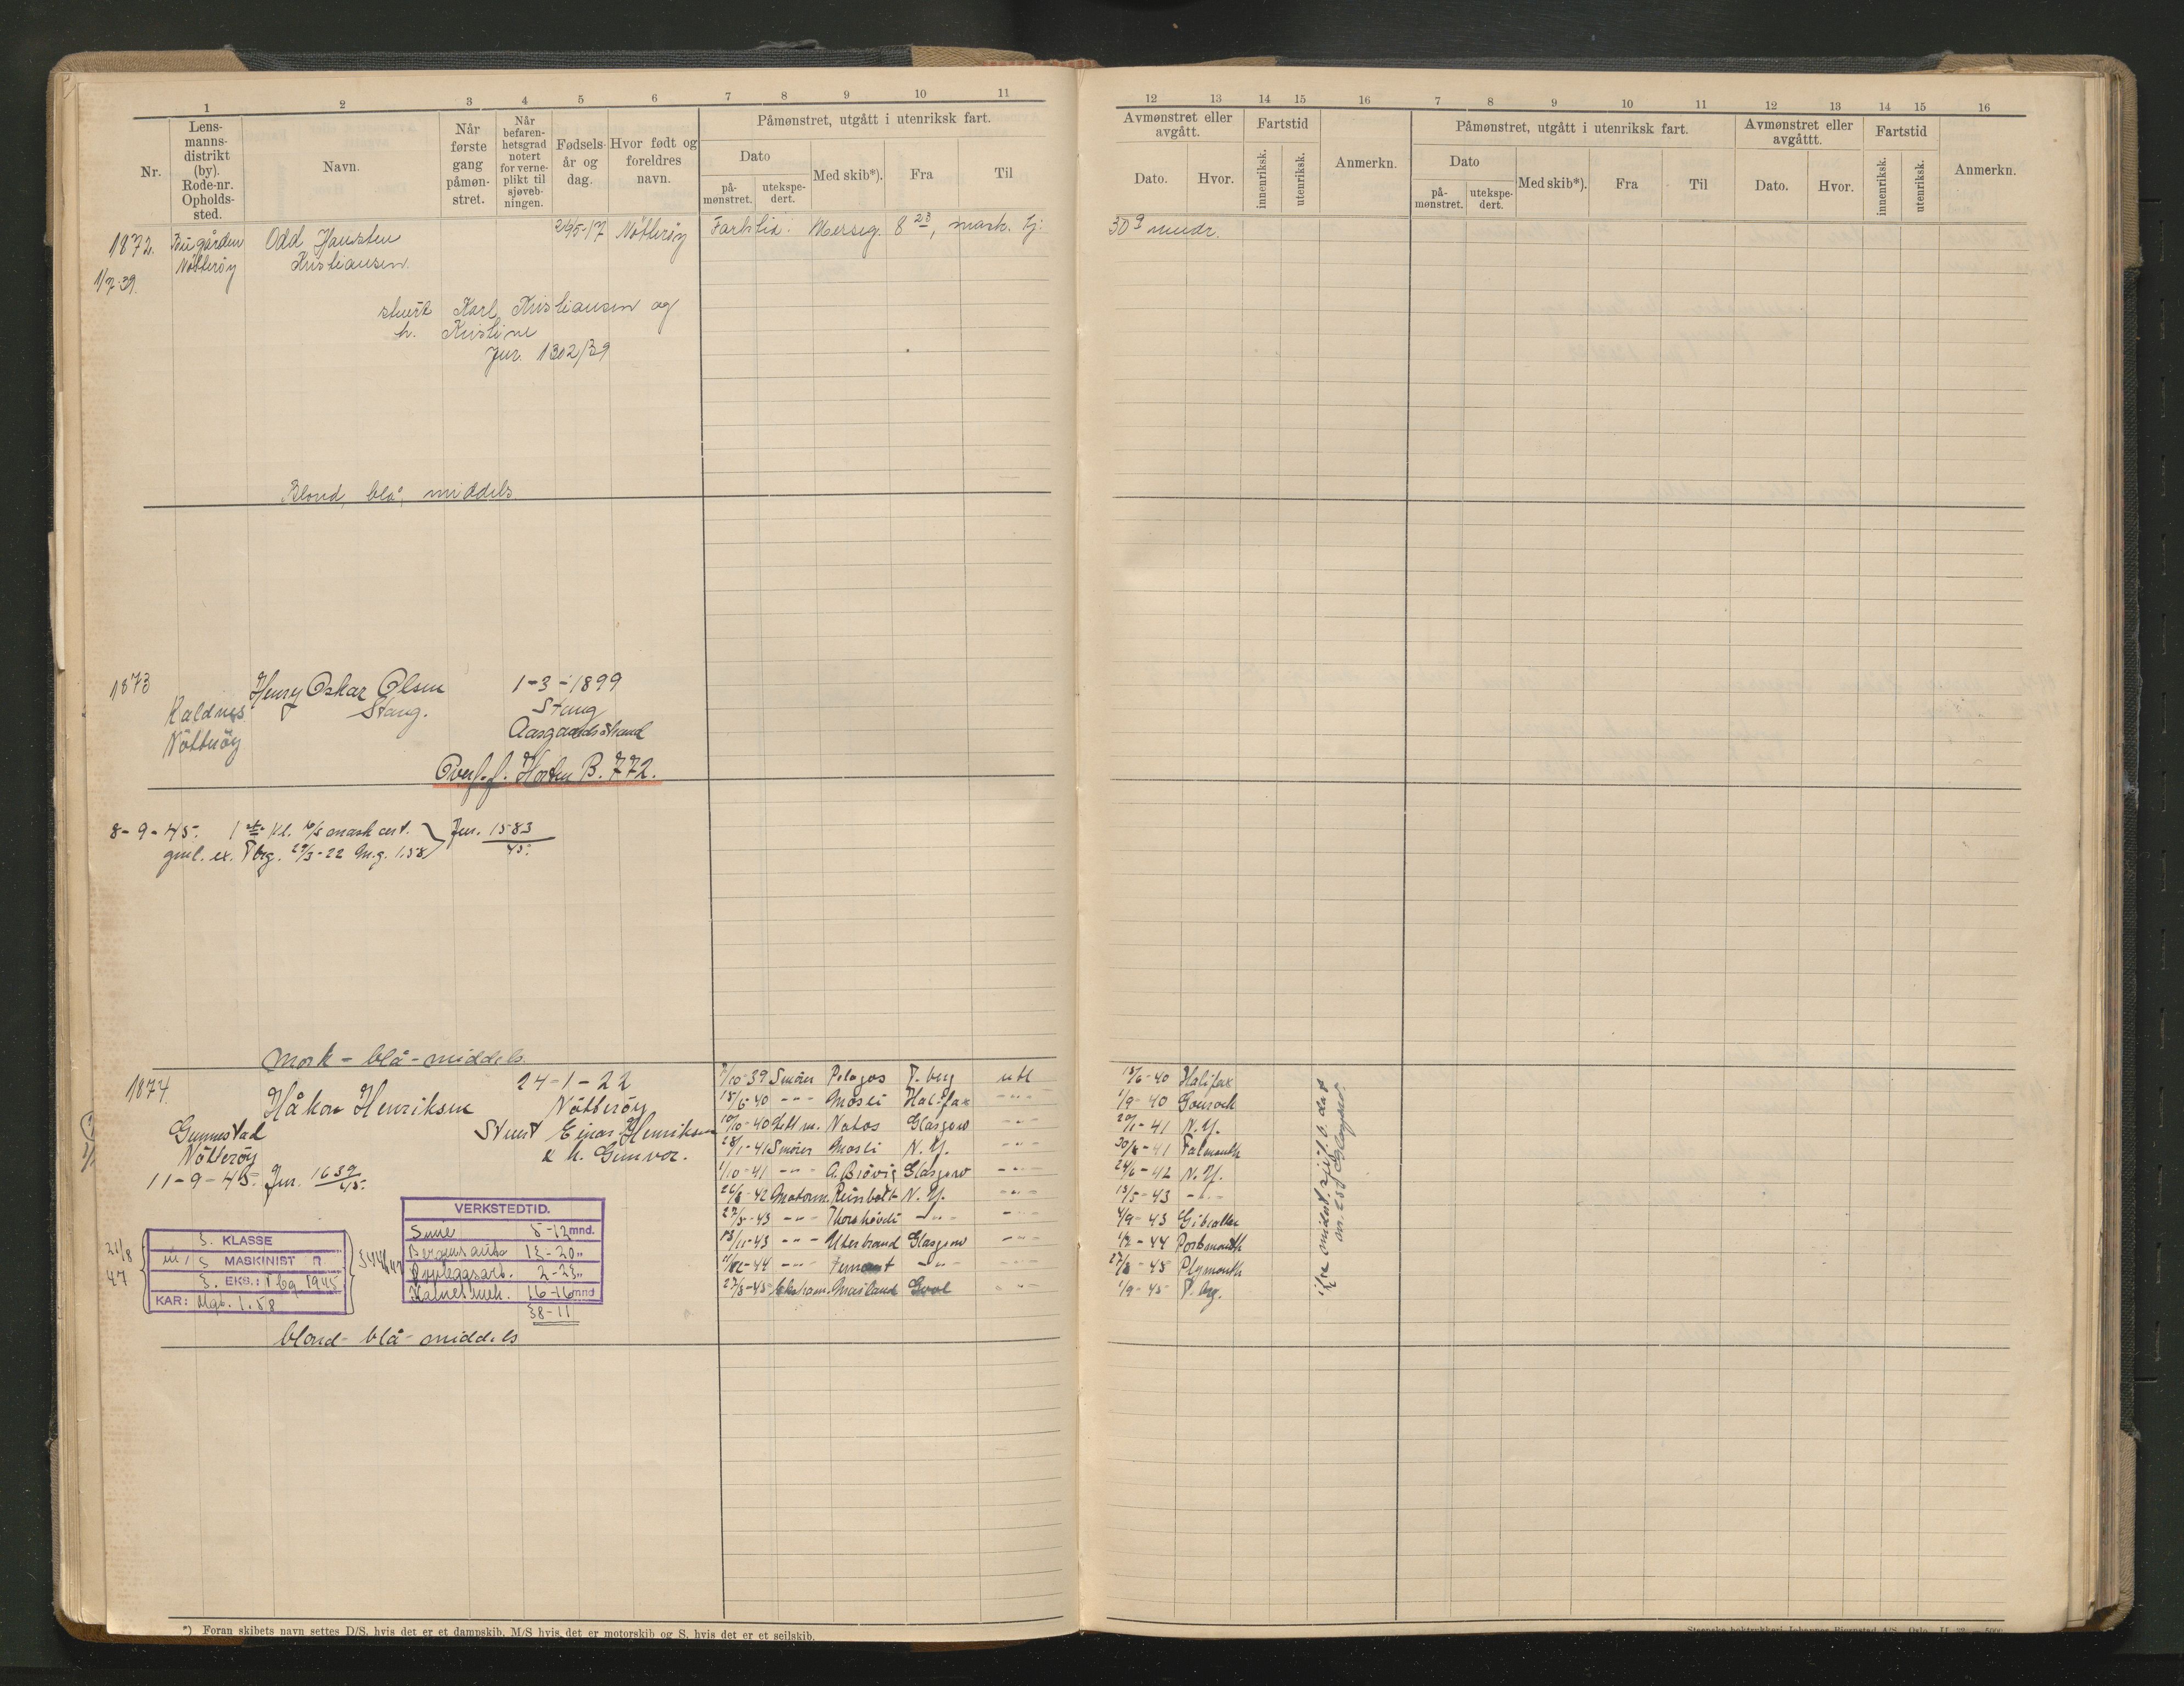 1 2 3 4 5 6 7 8 9 10 11
Nr.
Lens-
manns-
distrikt
(by).
Rode-nr.
Opholds-
sted.
Navn.
Når
første
gang
påmøn-
stret.
Når
befaren-
hetsgrad
notert
for verne-
plikt til
sjøveb-
ningen.
Fødsels-
år og
dag.
Hvor født og
foreldres
navn.
Påmønstret, utgått i utenriksk fart.
Dato
på-
mønstret.
utekspe-
dert.
Med skib*).
Fra
Til
12 13 14 15 16 7 8 9 10 11 12 13 14 15 16
Avmønstret eller
avgått.
Dato.
Hvor.
Fartstid
innenriksk.
utenriksk.
Anmerkn.
Påmønstret, utgått i utenriksk fart.
Dato
på-
mønstret.
utekspe-
dert.
Med skib*).
Fra
Til
Avmønstret eller
avgåttt.
Dato.
Hvor.
Fartstid
innenriksk.
utenriksk.
Anmerkn.
1872. Odd
Kristiansen
Nøtterøy
1/7-39.
Nøtterøy
Fartstid. 8 23, mask. tj: 30 9 mndr.
stuert Karl Kristiansen og
h. Kristine
Jur. 1302/39
Blond, blå, middels
1873 Henry Oskar Olsen 1-3-1899
Kaldnes Stang. Stang
Nøtterøy Aasgaardstrand
Overf. f. Horten B. 772.
8-9-45. 1ste Kl. mask cert. Jur. 1583/45.
gml. ex. Tbrg. 29/3-22 M.g. 1.58
Mørk - blå - middels.
1874. Håkon Henriksen 24-1-22
Nøtterøy
Gunnestad Stuert Einar Henriksen
Nøtterøy & h. Gunvor.
11-9-45. Jur. 1639/45.
7/10-39 Smører Pelagos T.berg utl 15/6-40 Halifax
15/6-40 -"- Mosli Halifax -"- 1/9-40 Gourock
10/10-40 Lettm. Natos Glasgow -"- 20/1-41 N.Y.
28/1-41 Smører Mosli N.Y. -"- 30/8-41 Falmouth
1/10-41 -"- A. Brøvig Glasgow -"- 24/6-42 N.Y.
26/8-42 Motorm. Reinholt N.Y. -"- 15/5-43 -"-
27/5-43 -"- Thorshøvdi -"- -"- 4/9-43 Gibraltar
13/11-43 -"- Utestrand Glasgow -"- 1/2-44 Portsmouth
-44 -"- Fernmont -"- -"- 27/3-45 Plymouth
27/3-45 Masland Gool -"- 1/9-45 T.brg.
21/8
47
3. KLASSE
m/s MASKINIST
3. EKS.: Tbg. 1945
KAR: Mgb. 1.58
VERKSTEDTID.
Smie 5-12 mnd.
Bergens auto 13-20 "
Oppleggsarb. 2-23 "
mek. 16-16 mnd
38-11
blond - blå - middels
*) Foran skibets navn settes D/S. hvis det er et dampskib, M/S hvis det er motorskib og S. hvis det er et seilskib.